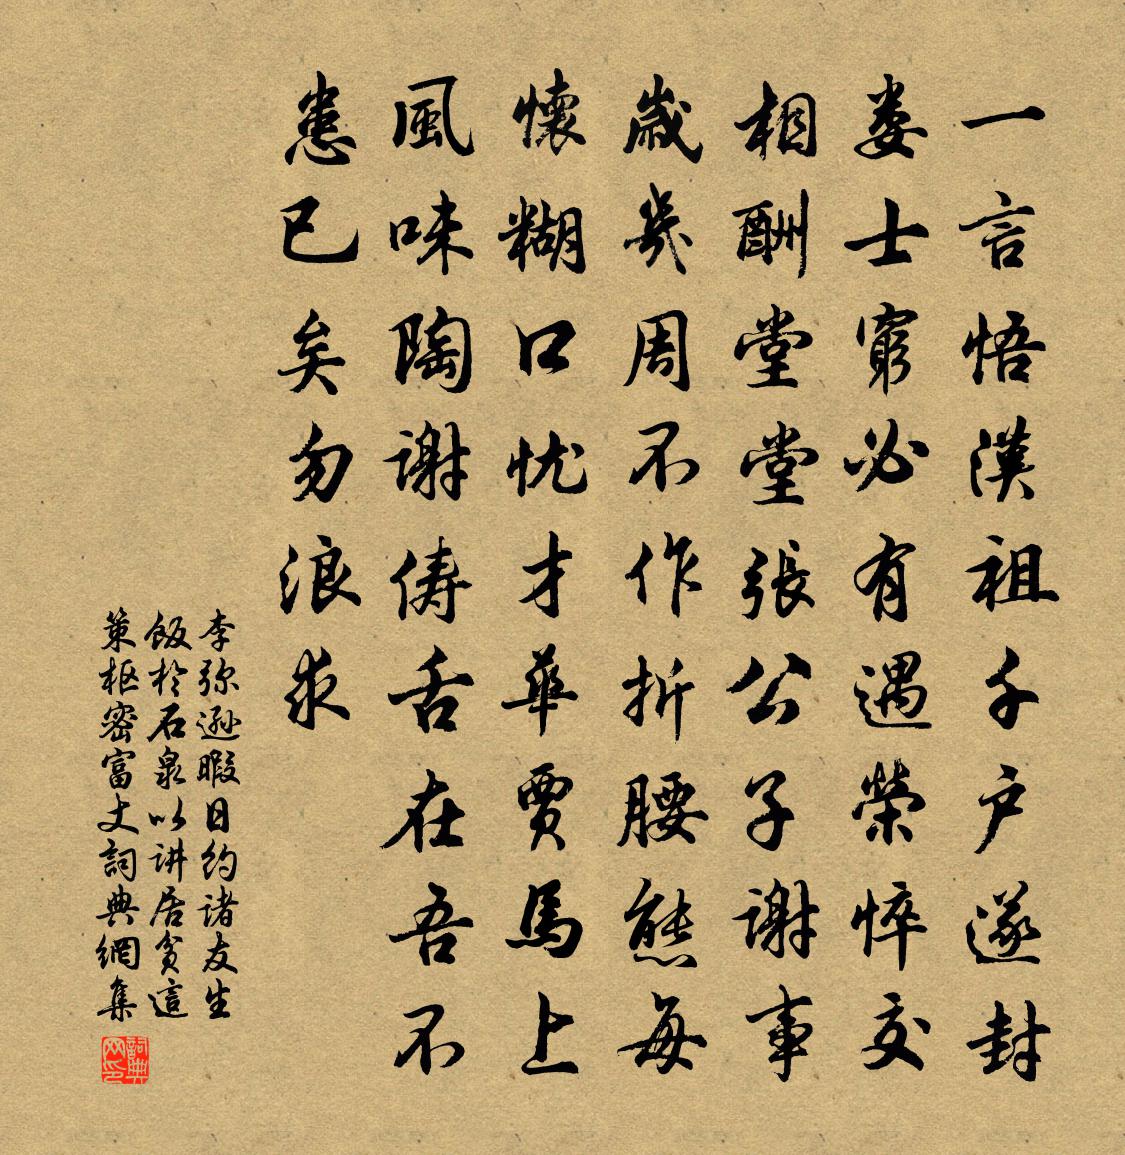 一言悟漢祖千户遂封
娄士窮必有遇榮悴交
相酬堂堂張公子謝事
歲幾周不作折腰態每
懷糊口忧才華賈馬上
風味陶謝儔舌在吾不
患已矣勿浪求
李弥遜暇日约诸友生
飯於石泉以讲居貧這
策枢密富丈詞典網集
詞典网印